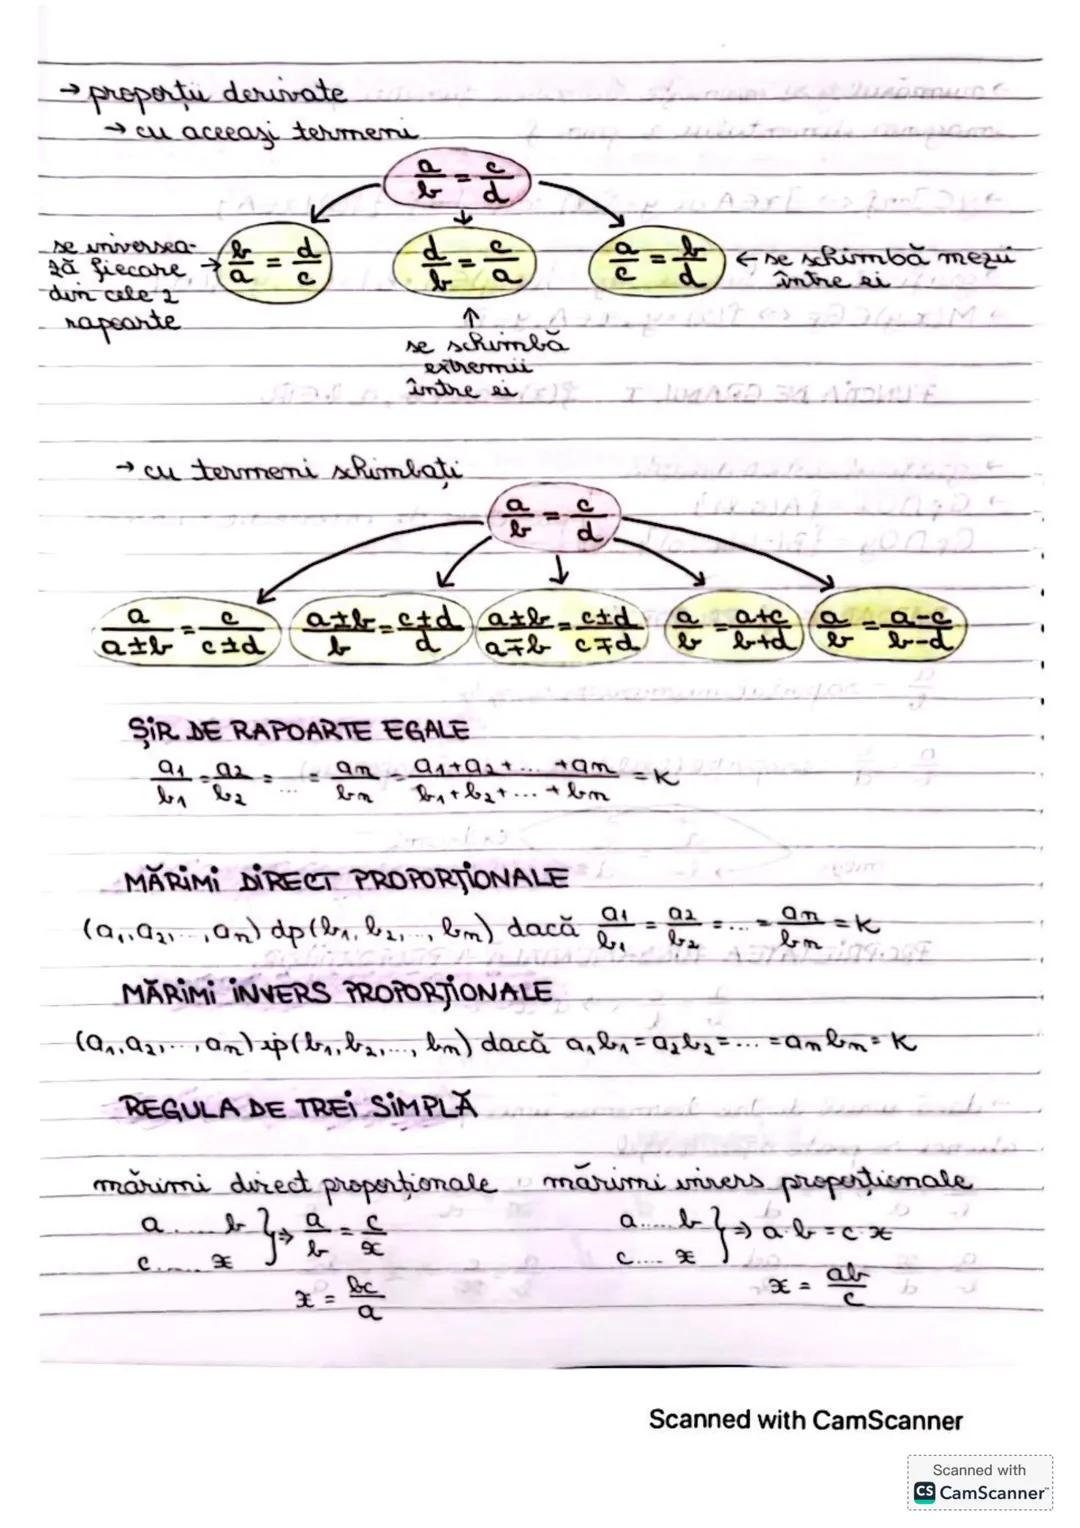 → proporții derivate
→ cu aceeași termeni
a/b = c/d
se inversea-
ză fiecare →
din cele 2
rapoarte
b/a = d/c
d/b = c/a
a/c = b/d
← se schimbă mezii
între ei
↑
se schimbă
extremii
între ei
→ cu termeni schimbați
a/b = c/d
a/a±b = c/c±d
a±b/b = c±d/d
a±b/a∓b = c±d/c∓d
a/b = a+c/b+d
a/b = a-c/b-d
ȘIR DE RAPOARTE EGALE
a₁/b₁ = a₂/b₂ = ... = aₙ/bₙ = a₁+a₂+...+aₙ/b₁+b₂+...+bₙ = K
MĂRIMI DIRECT PROPORȚIONALE
(a₁,a₂,...,aₙ) dp(b₁,b₂,..., bₙ) dacă a₁/b₁ = a₂/b₂ = ... = aₙ/bₙ = K
MĂRIMI INVERS PROPORȚIONALE
(a₁,a₂,...,aₙ) ip(b₁,b₂,..., bₙ) dacă a₁b₁=a₂b₂=...=aₙbₙ=K
REGULA DE TREI SIMPLĂ
mărimi direct proporționale
a......b
c......x
} ⇒ a/b = c/x
x = bc/a
mărimi invers proporționale
a......b
c.... x
} ⇒ a·b=c·x
x = ab/c
Scanned with CamScanner
Scanned with
CS CamScanner™